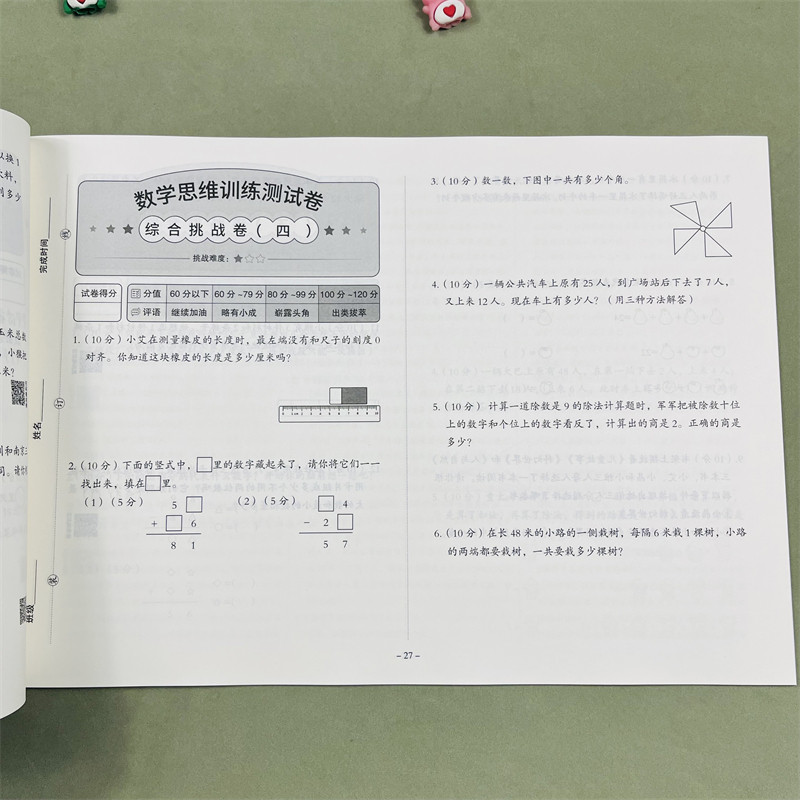 以换1
饮料,
到多少
玉米总数
,小猴把
米?
则和南京三
完成时间
姓名
班级
线
订
装
数学思维训练测试卷
综合挑战卷(四)
挑战难度:★☆☆
试卷得分 分值 60分以下 60分~79分 80分~99分 100分~120分
评语 继续加油 略有小成 崭露头角 出类拔萃
1.(10分)小艾在测量橡皮的长度时,最左端没有和尺子的刻度0
对齐。你知道这块橡皮的长度是多少厘米吗?
2.(10分)下面的竖式中,□里的数字藏起来了,请你将它们一一
找出来,填在□里。
(1)(5分) 5 □ (2)(5分) □ 4
+ □ 6 − 2 □
8 1 5 7
3.(10分)数一数,下图中一共有多少个角。
4.(10分)一辆公共汽车上原有25人,到广场站后下去了7人,
又上来12人。现在车上有多少人?(用三种方法解答)
5.(10分) 计算一道除数是9的除法计算题时,军军把被除数十位
上的数字和个位上的数字看反了,计算出的商是2。正确的商是
多少?
6.(10分)在长48米的小路的一侧栽树,每隔6米栽1棵树,小路
的两端都要栽树,一共要栽多少棵树?
- 27 -